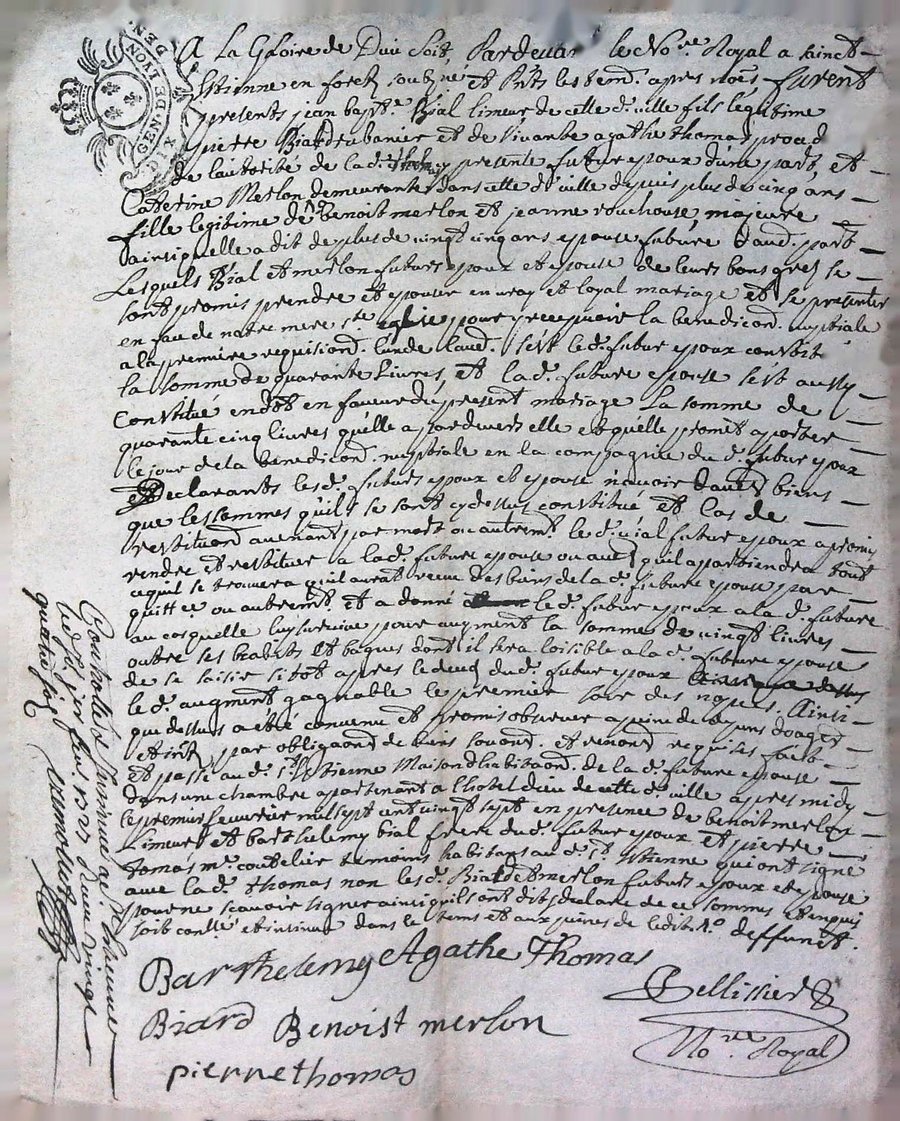 GEN. DE LYON. DEN.
DIX
A La Gloire de Dieu soit, Pardevant le No.re Royal a sainct
Estienne en forest soubz.ne et p.nts les tem.s apres nom.és furent
presents jean bap.te Bial limeur de cette d. ville fils légitime
pierre Biard rubanier et de vivante agathe thomas proced
de l'autorité de la d. thomas cy presente futur epoux d'une part, et
Catherine Merlon demeurante dans cette d. ville depuis plus de cinq ans
fille legitime de benoit merlon et jeanne rouchouse, majeure
ainsi quelle a dit de plus de vingt cinq ans epouse future d'aud. part
Lesquels Bial et merlon futurs epoux et epouse de leurs bons gres se
sont promis prendre et epouser en vray et loyal mariage et se presenter
en face de notre mere s.te eglise pour y recepvoir la benedicôn. nuptiale
a la premiere requisiôn. l'un de l'aud. s'est le d. futur epoux constitué
la somme de quarante Livres, et la d. future epouse s'est aussy
Constitué en dot en faveur du present mariage La somme de
quarante cinq livres qu'elle a pardevers elle et quelle promet apporter
le jour de la benedicôn. nuptiale en la compagnie du d. futur epoux
Declarants les d. futurs epoux et epouse n'avoir d'autres biens
que les sommes qu'ils se sont cy dessus constitué et cas de
restituôn avenant par mort ou autrem.t le d. bial futur epoux a promis
rendre et restituer a la d. future epouse ou aux qu'il appartiendra tout
ce qu'il se trouvera qu'il aurat receu des biens de la d. future epouse par
quitt.ce ou autrem.t et a donné le d. futur epoux a la d. future
au cas quelle luy survive pour augment la somme de vingt livres
outre ses habits et bagues dont il sera loisible a la d. future epouse
de se saisir sitot apres le deced du d. futur epoux
le d. augment gagnable le premier jour des nopces. Ainsi
que dessus a été convenu et promis observer a peine de
et int. par obligaôn de biens soumôn. et renonôn requises fait
et passé au d. s.t Estienne Maison d'habitaôn. de la d. future epouse
dans une chambre apartenant a l'hotel dieu de cette d. ville apres midy
le premier feuvrier mil sept cent vingt sept en presence de benoit merlon
Limeur et barthelemy bial frere du d. futur epoux et pierre
tomas m.e coutelier temoins habitans au d. s.t Estienne qui ont signé
avec la d. thomas non les d. Biard et merlon futurs epoux et epouse
pour ne scavoir signer ainsi qu'ils ont dit, declaré de ce sommés et enquis
soit con.llé et insinué dans le tems et aux peines de l'edit. deffunct.
Barthelemy Agathe Thomas
Biard Benoist merlon
pierre thomas
Pellissier
No.re Royal
Controllé
le d. jour fev. 1727 Receu vingt
quatre sols